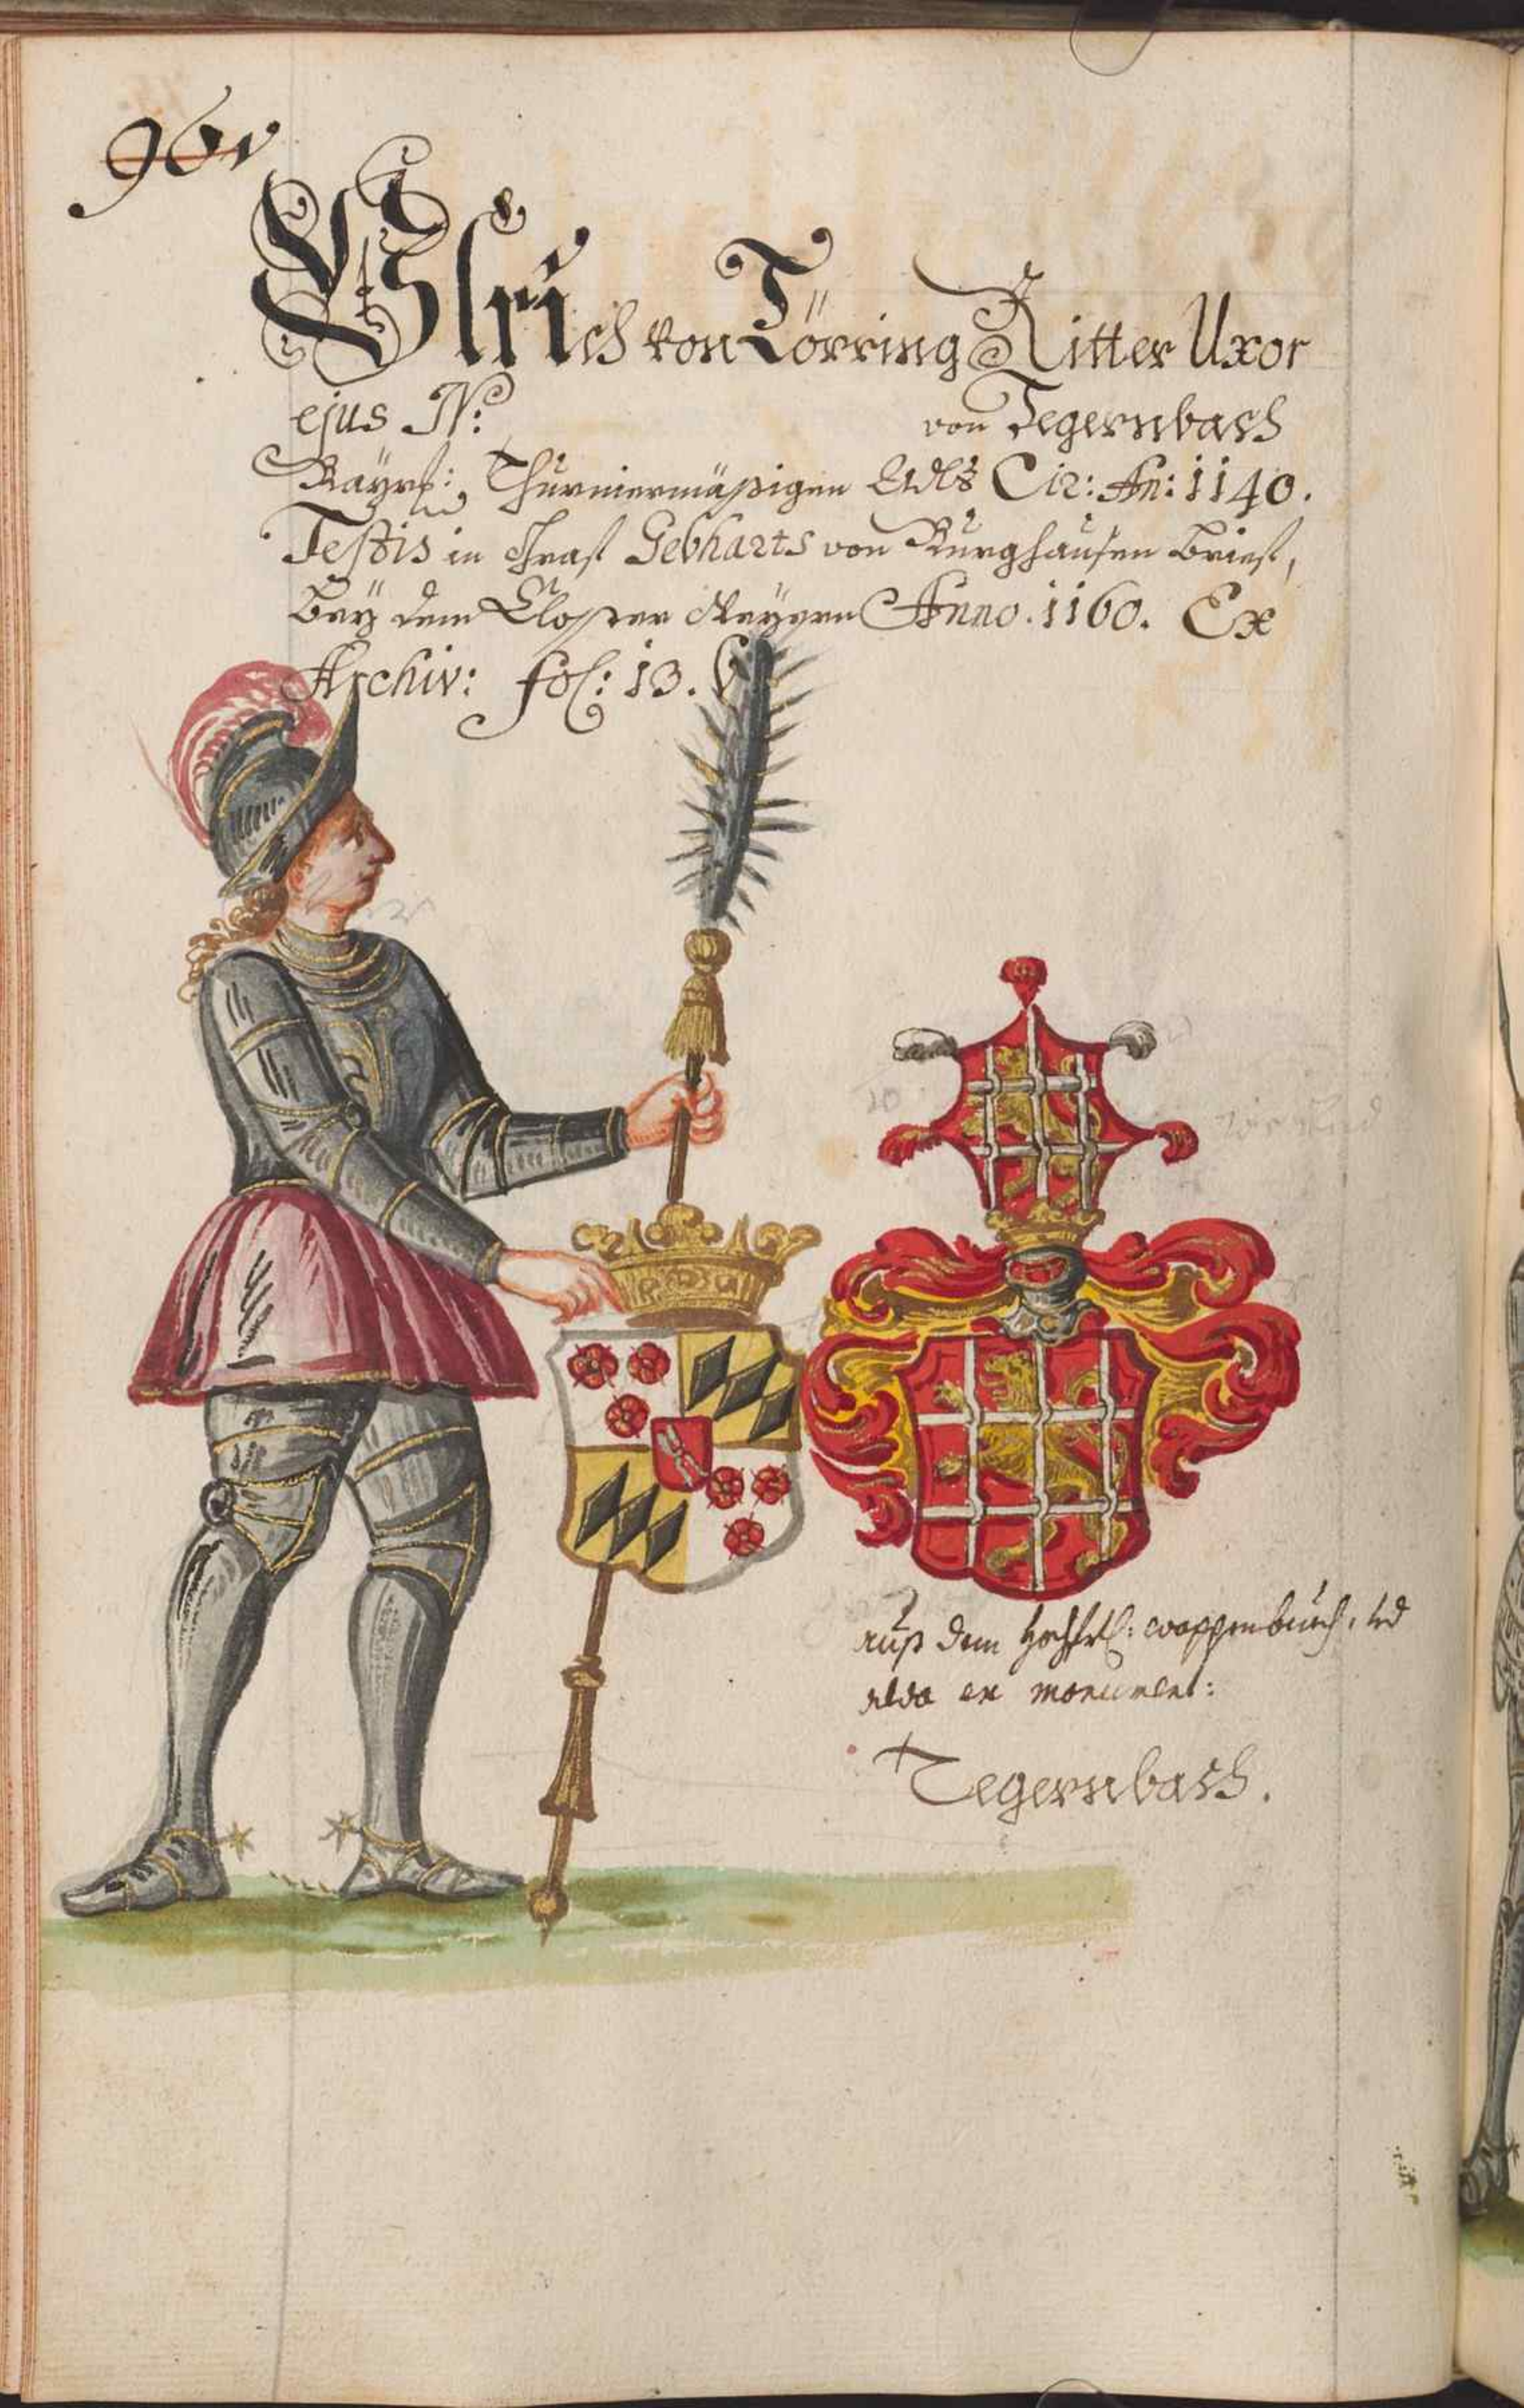 96v
Ulrich von Törring Ritter Uxor
ejus N: von Tegernbach
Bayrl: Thurniermäßigen Adls Cir: An: 1140.
Testis in Graf Gebharts von Burghausen brief,
bey dem Closter Anno. 1160. Ex
Archiv: fol: 13.
auß dem wappenbuech
ex monument:
Tegernbach.